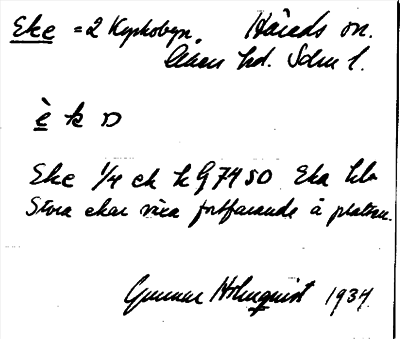 Eke = 2 Kyrkobyn. Härads sn.
Åkers hd. Sdm l.
è k ə
Eke 1/4 ek k G 74 SO Eka kla
Stora ekar växa fortfarande å platsen.
Gunnar Holmquist 1934.